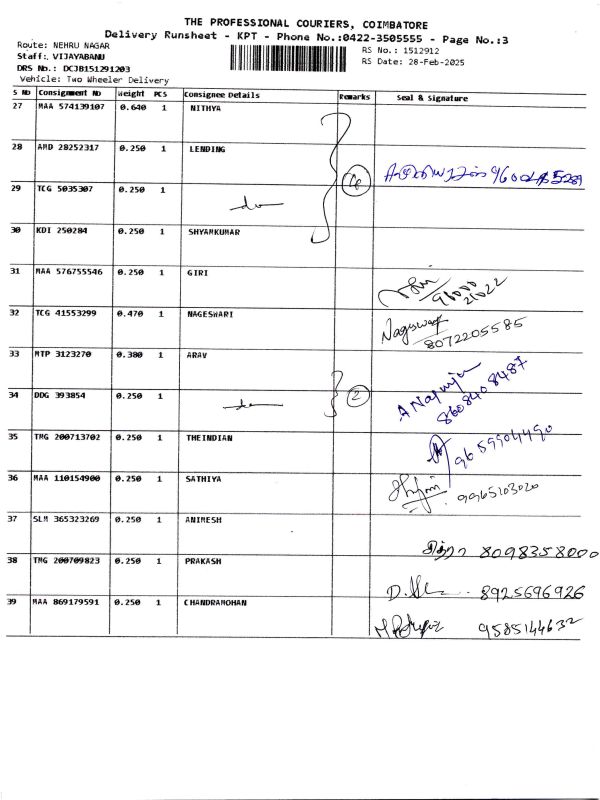 THE PROFESSIONAL COURIERS, COIMBATORE
Delivery Runsheet - KPT - Phone No.:0422-3505555 - Page No.:3
Route: NEHRU NAGAR
RS No.: 1512912
Staff:. VIJAYABANU
RS Date: 28-Feb-2025
DRS No.: DCJB151291203
Vehicle: Two Wheeler Delivery
S No Consignment No Weight PCS Consignee Details Remarks Seal & Signature
27 MAA 574139107 0.640 1 NITHYA
28 AMD 28252317 0.250 1 LENDING
29 TCG 5035307 0.250 1
30 KDI 250284 0.250 1 SHYAMKUMAR
31 MAA 576755546 0.250 1 GIRI
96000
21022
32 TCG 41553299 0.470 1 NAGESWARI
Nageswari
8072205585
33 MTP 3123270 0.380 1 ARAV
34 DDG 393854 0.250 1 2
8608408487
35 TMG 200713702 0.250 1 THEINDIAN
9659904490
36 MAA 110154900 0.250 1 SATHIYA
9965103020
37 SLM 365323269 0.250 1 ANIMESH
சித்ரா 8098358000
38 TMG 200709823 0.250 1 PRAKASH
8925696926
39 MAA 869179591 0.250 1 CHANDRAMOHAN
9585144632